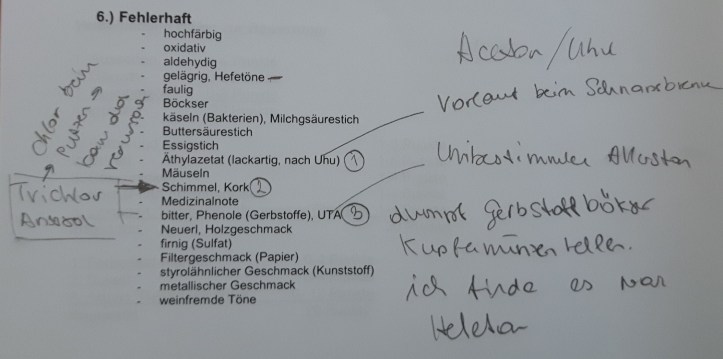 6.) Fehlerhaft
- hochfärbig
- oxidativ
- aldehydig
- gelägrig, Hefetöne
- faulig
- Böckser
- käseln (Bakterien), Milchgsäurestich
- Buttersäurestich
- Essigstich
- Äthylazetat (lackartig, nach Uhu) 1
- Mäuseln
- Schimmel, Kork 2
- Medizinalnote
- bitter, Phenole (Gerbstoffe), UTA 3
- Neuerl, Holzgeschmack
- firnig (Sulfat)
- Filtergeschmack (Papier)
- styrolähnlicher Geschmack (Kunststoff)
- metallischer Geschmack
- weinfremde Töne
Chlor beim
Putzen
kann das
Trichlor
Anisol
Aceton/Uhu
Vorlauf beim
dumpf
ich finde es war